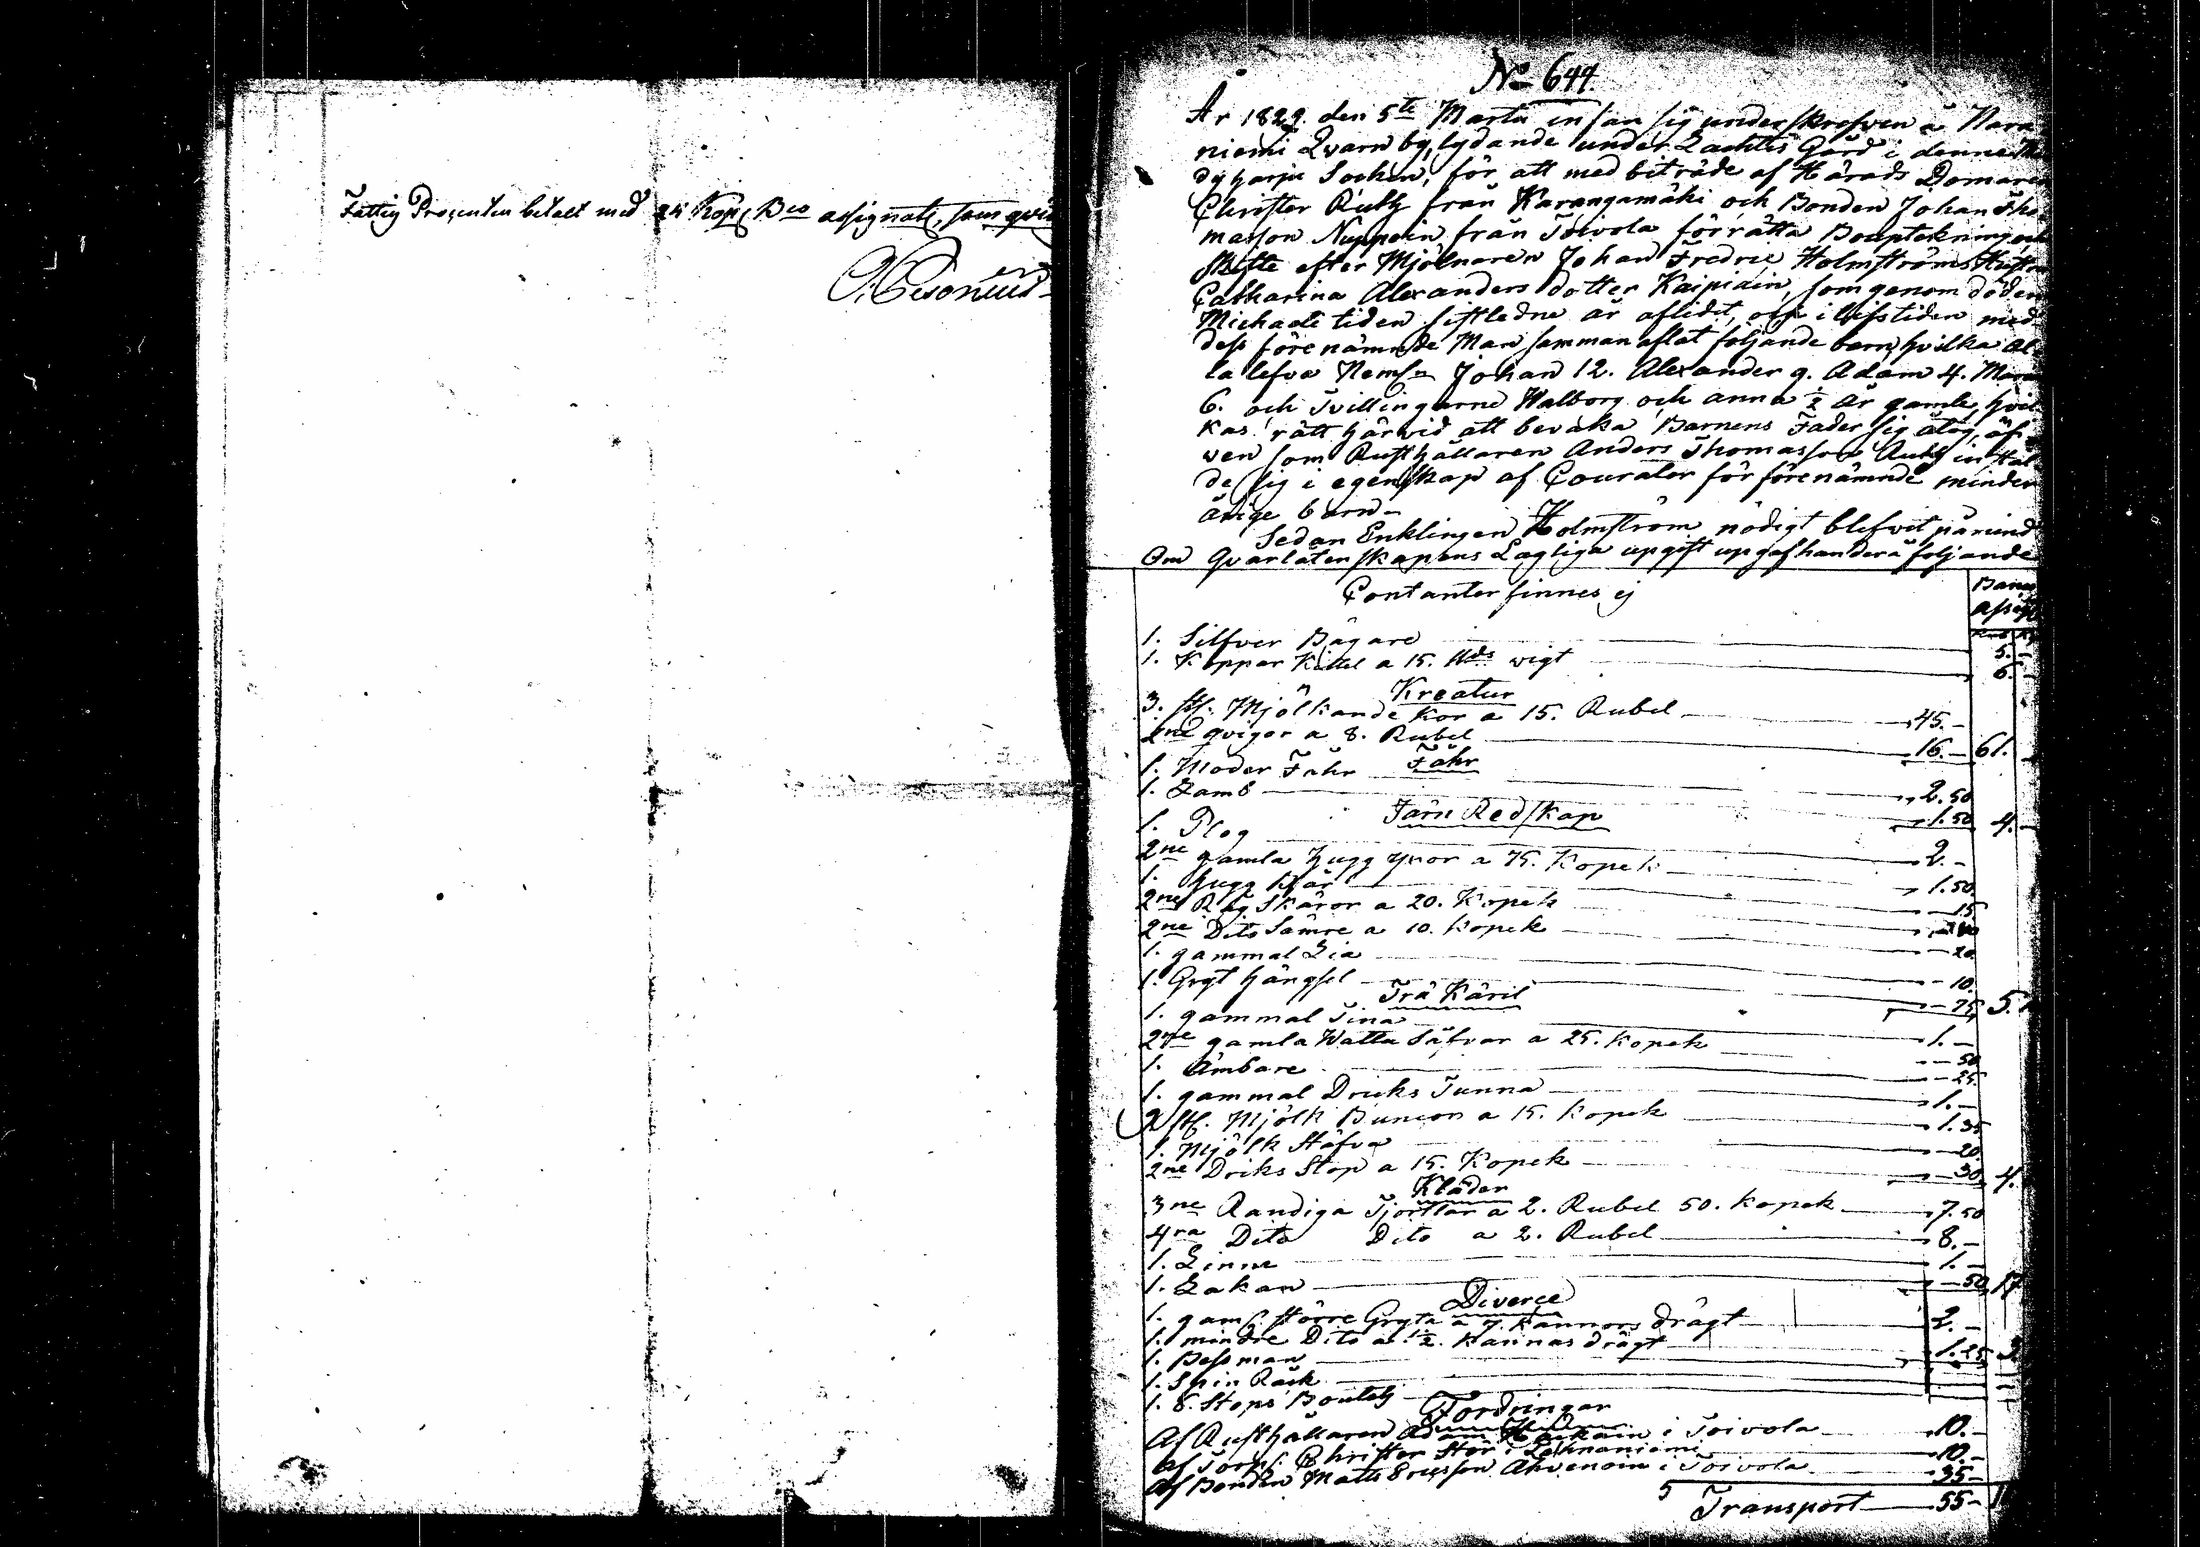 Fattig Procenten betalt med 24 Kop. Bco assignate, som qvit
No 644.
År 1829. den 5te Martii infan sig underskrefwen å Nara
niemi Qvarn by, lydande under Lachtis Gård i denne
dyharju Socken, för att med biträde af Härads Domaren
Christer Rutz från Karangamäki och Bonden Johan Tho
masson Nuppoin från Toivola förrätta Boupteckning och
Skifte efter Mjölnaren Johan Fredric Holmströms Hustru
Catharina Alexanders dotter Kaipiain, som genom döden
Michaeli tiden sistledne år aflidit, och i lifstiden med
dess förenämnde Man samman aflat följande barn, hvilka al
la lefva Nemln Johan 12. Alexander 9. Adam 4. Maria
6. och Tvillingarne Walborg och anna ½ år gamle, hvil
kas rätt härvid att bevaka Barnens Fader sig åtog, äf
ven som Rusthållaren Anders Thomasson Rutz instäl
de sig i egenskap af Courator för förenämnde minder
årige barn—
Sedan Enklingen Holmström nödigt blefwit påmind
Om Qvarlåtenskapens Lagliga upgift upgaf han derå följande
Contanter finnes ej
Banco
assign
Rub K
1. Silfver Bägare 5.—
1. Koppar Kittel a 15. ℔ds wigt 6.—
Kreatur
3. st. Mjölkande Kor a 15. Rubel 45.—
2ne qvigor a 8. Rubel 16.— 61.
Fåhr
1. Moder Fåhr 2.50
1. Lamb 1.50 4.—
Järn Redskap
1. Plog 2.—
2ne gamla hugg yxor a 75. Kopek 1.50
1. hugg Kjär 15
2ne Råg Skäror a 20. Kopek 40
2ne Dito Sämre a 10. Kopek 20
1. gammal Lia 10.
1. Gryt hängsel 75 5.1
Trä Käril
1. gammal Tina 1.—
2ne gamla Watta Såfvar a 25. Kopek 50
1. Ämbare 25.
1. gammal Dricks Tunna 1.—
9 st. Mjölk Buncor a 15. Kopek 1.35
1. Mjölk Stäfva 20.
2ne Driks Stop a 15. Kopek 30 4.
Kläder
3ne Randiga Tjortlar a 2. Rubel 50. Kopek 7.50
4ra Dito Dito a 2. Rubel 8.—
1. Linne 1.—
1. Lakan 50 17
Diverce
1. gam. större Gryta a 7. Kannors drägt 2.—
1. mindre Dito a 1½. Kannas drägt 1.25 3
1. Bessman
1. Spin Räck
1. 8. Stops Boutelj
Fordringar
Af Rusthållaren Adam Heukain i Toivola 10.—
af Torp. Christer Stör i Lehnaniemi 10.—
af Bonden Matts Ericsson Ahvenain i Toivola 35—
5 Transport 55— 1